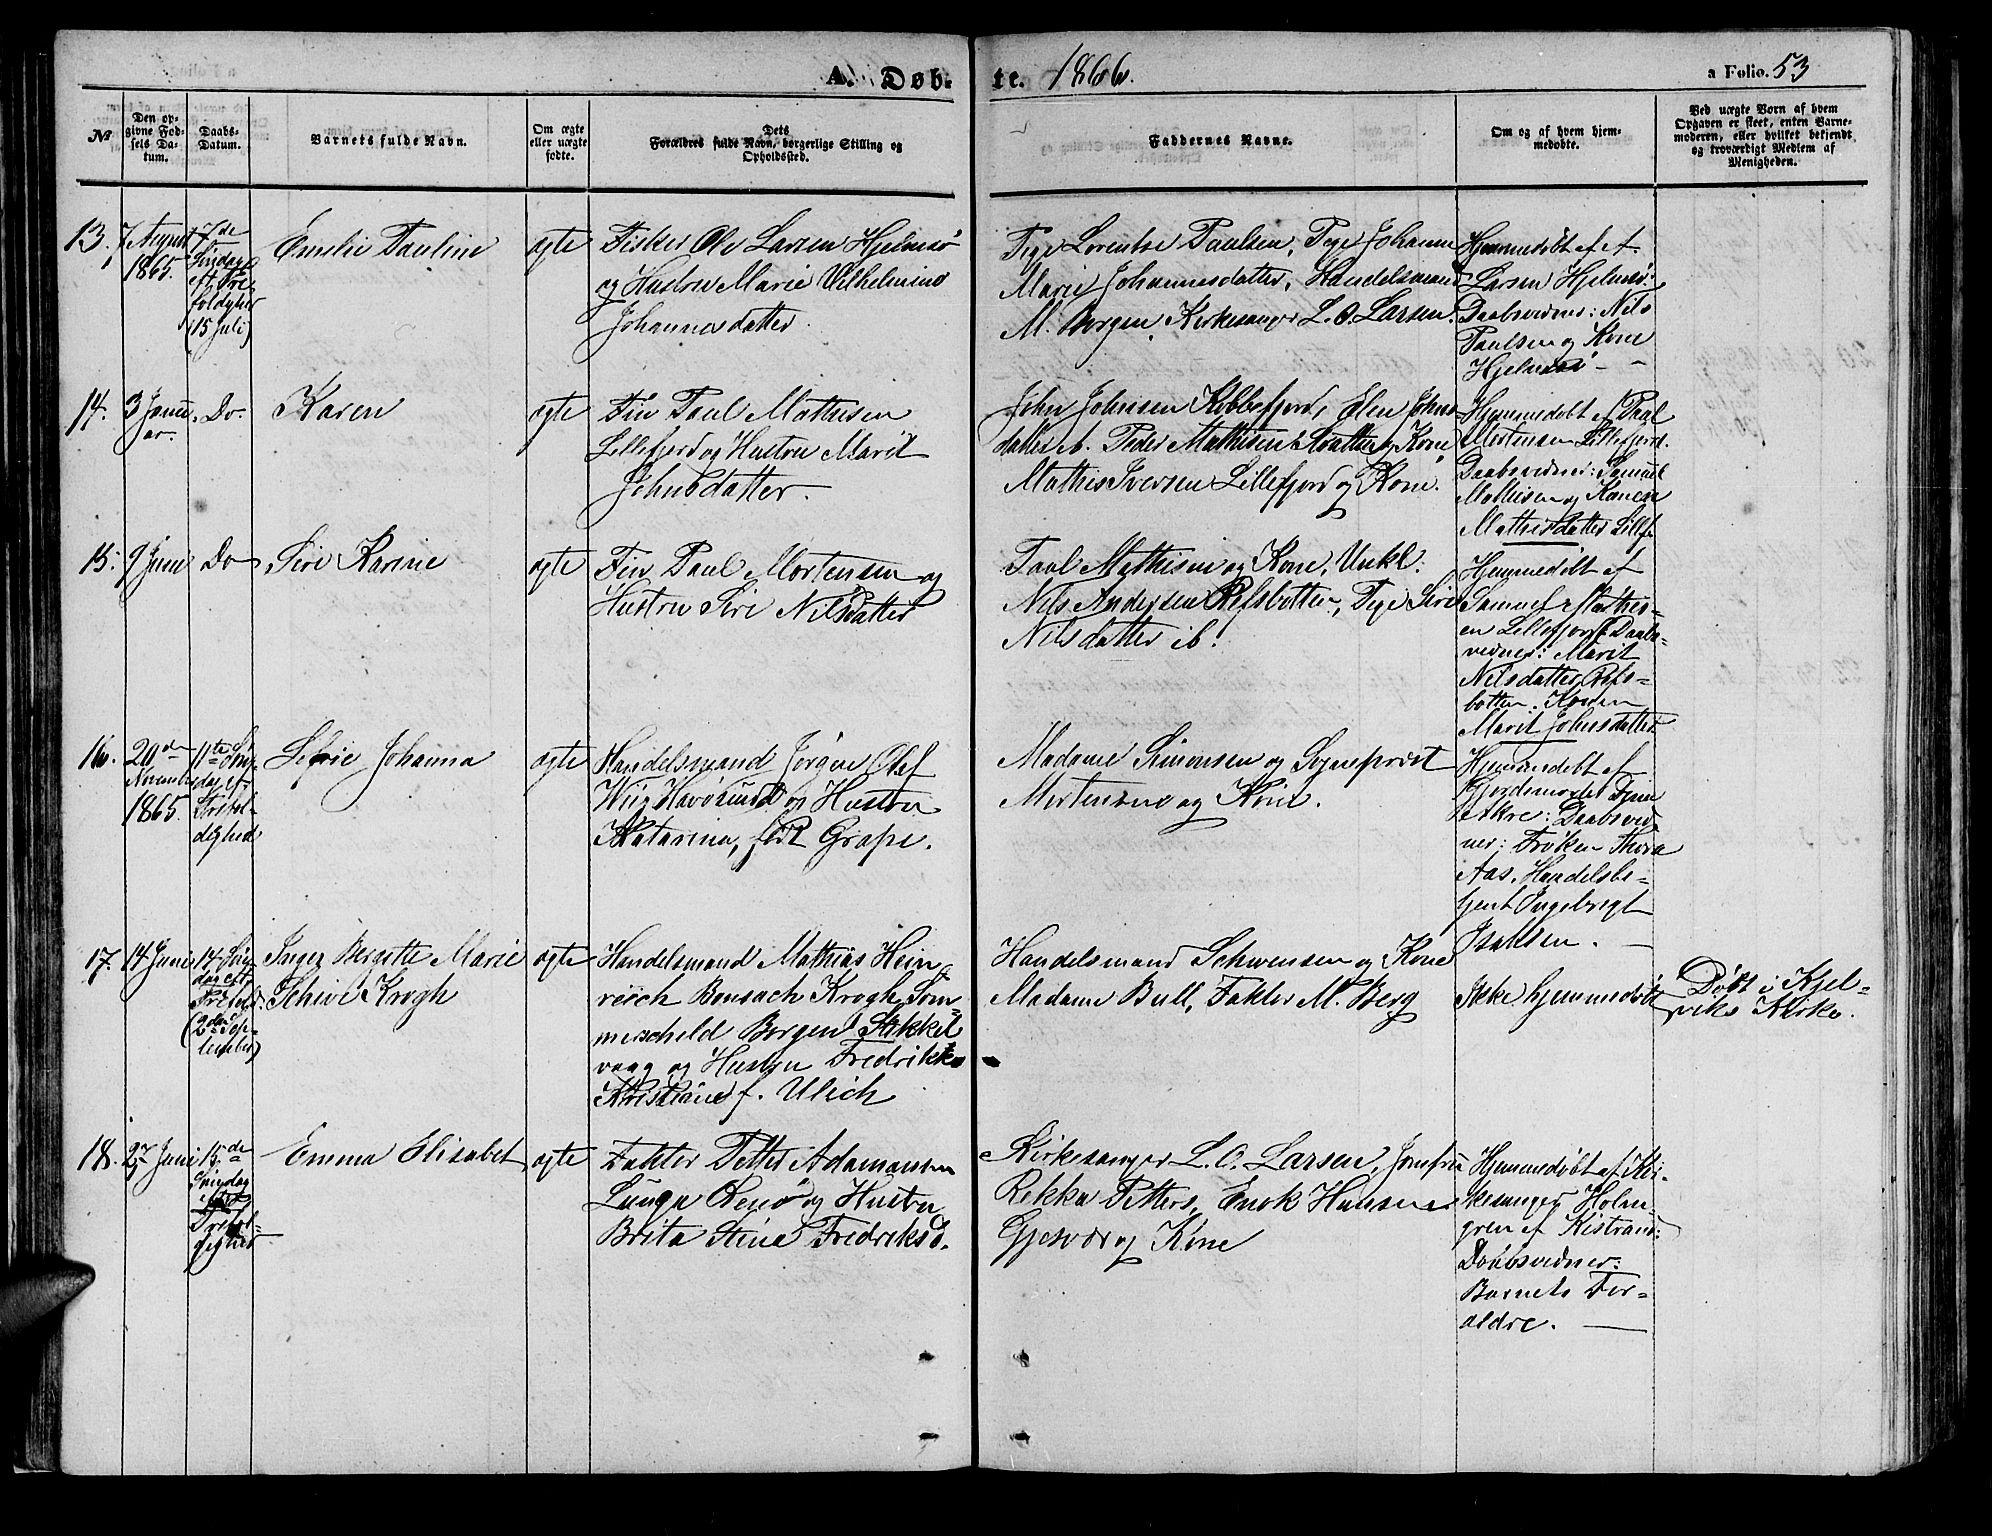 A. Døb- te. 1866. a Folio. 53
№
Den op-
givne Fød-
sels Da-
tum.
Daabs-
Datum.
Barnets fulde Navn.
Om ægte
eller uægte
fødte.
Dets
Forældres fulde Navn, borgerlige Stilling og
Opholdssted.
Faddernes Navne.
Om og af hvem hjem-
medøbte.
Ved uægte Børn af hvem
Opgaven er skeet, enten Barne-
moderen, eller hvilket bekjendt
og troværdigt Medlem af
Menigheden.
13.
7 August
1865.
7de
Søndag
eft. Tre
foldighed
(15 Juli)
Emelie Pauline
ægte
Fisker Ole Larsen Hjelmsø
og Hustru Marie Vilhelmine
Johannesdatter.
Pige Lorentse Paulsen, Pige Johanne
Marie Johannesdatter, Handelsmand
M. Borgen, Kirkesanger L. O. Larsen.
Hjemmedøbt af A.
Larsen Hjelmsø:
Daabsvidner: Nils
Paulsen og Kone
Hjelmsø -
14.
3 Janu
ar.
Do.
Karen
ægte
Fin Paul Mathisen
Lillefjord og Hustru Marit
Johnsdatter.
John Johnsen Kobbefjord, Elen Johns-
datter ib. Peder Mathisen og Kone
Mathis Iversen Lillefjord og Kone.
Hjemmedøbt af Paul
Mortensen Lillefjord.
Daabsvidner: Samuel
Mathisen og Karen
Mathisdatter Lillef
15.
9 Juni
Do
Siri Karine
ægte
Fin Paul Mortensen og
Hustru Siri Nilsdatter
Paul Mathisen og Kone, Unkl.
Nils Andersen Refsbotten, Pige Siri
Nilsdatter ib.
Hjemmedøbt af
Samuel Mathis-
en Lillefjord Daabs-
vidner: Marit
Nilsdatter Refs-
botten. Konen
Marit Johnsdatter
16.
20de
November
1865.
11te Søn-
dag ef.
Trefol-
dighed
Sefrie Johanna
ægte
Handelsmand Jørgen Olaf
Wiig Havøsund og Hustru
Katarina, født Grape.
Madame Simonsen og Sogneprest
Mortensen og Kone.
Hjemmedøbt af
Gjordemoder Fine
Akre: Daabsvid
ner: Frøken Thora
Aas, Handelsbe-
tjent Ingebrigt
Isaksen.
17.
14 Juni
14 Søn
dag eft.
Trefold.
(2den Sep-
tember)
Inger Bergitte Marie
Schive Krogh
ægte
Handelsmand Mathias Hein-
reich Bonsach Krogh Som
merscheld Borgen Stikkel
vaag og Hustru Fredrikke
Kristiane f. Ulich
Handelsmand Schwensen og Kone
Madame Bull, Faktor M. Berg
Ikke hjemmedøbt
Døbt i Kjel-
viks Kirke.
18.
27 Juni
15de
Søndag
eft
Trefol-
dighed
Emma Elisabet
ægte
Faktor Petter Adamansen
Lunga Renø og Hustru
Brita Stine Fredriksd.
Kirkesanger L. O. Larsen, Jomfru
Rekka Petters, Enok Hansen
Gjesvær og Kone
Hjemmedøbt af Kir-
kesanger Holm-
gren af Kistrand:
Daabsvidner:
Barnets For-
ældre.